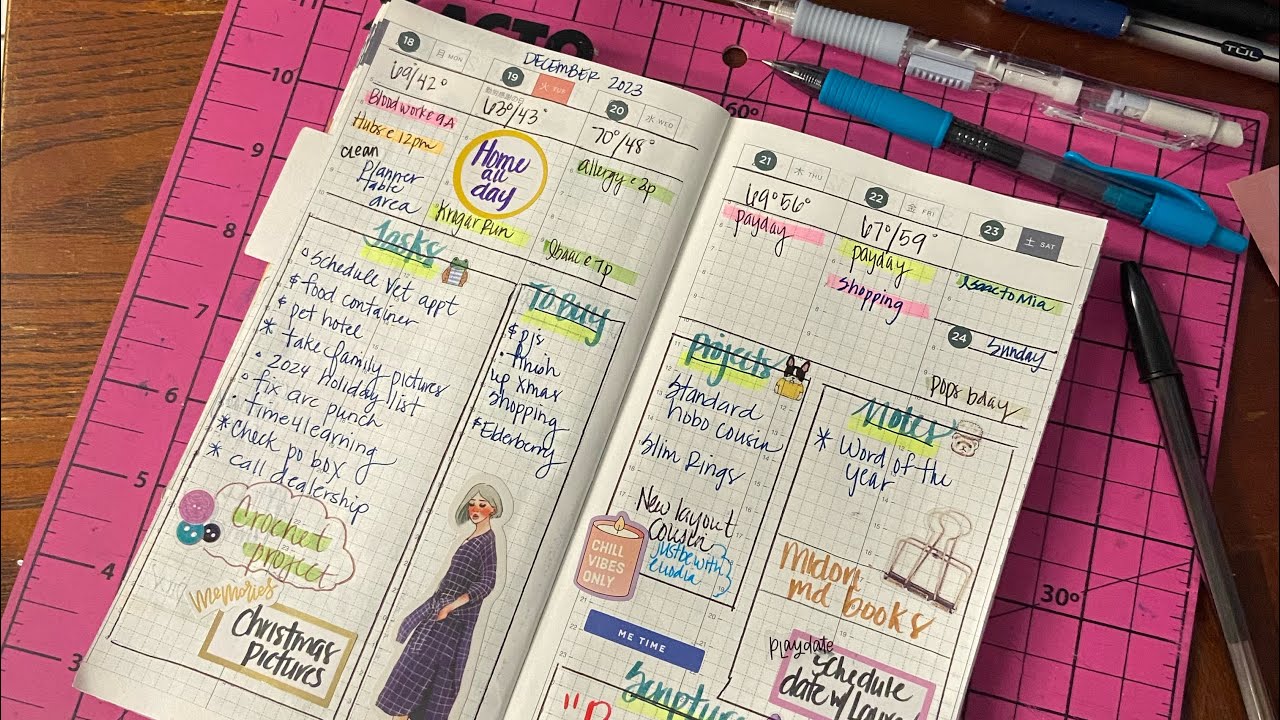 X-ACTO
DECEMBER 2023
18 月 MON
69/42°
Bloodwork 9A
Hubs @ 12pm
clean
planner
table
area
19 火 TUE
63°/43°
Home
all
day
Kroger Run
20 水 WED
70°/48°
allergy @ 2p
Isaac @ 7p
Tasks
schedule vet appt
$ food container
$ pet hotel
* take family pictures
• 2024 holiday list
• fix arc punch
• time4learning
* Check po box
* call
dealership
Crochet
project
Memories
Christmas
pictures
To Buy
$ pjs
• finish
up xmas
shopping
$ Elderberry
21 木 THU
69°56°
payday
22 金 FRI
67°/59°
payday
shopping
23 土 SAT
Isaac to Mia
24 Sunday
pops bday
Projects
Standard
hobo cousin
Slim Rings
New layout
cousin
just be with
CHILL
VIBES
ONLY
ME TIME
Scripture
Notes
* Word of the
year
Midori
md books
playdate
schedule
date w/
TUL
11
10
9
8
7
6
5
4
3
60°
30°